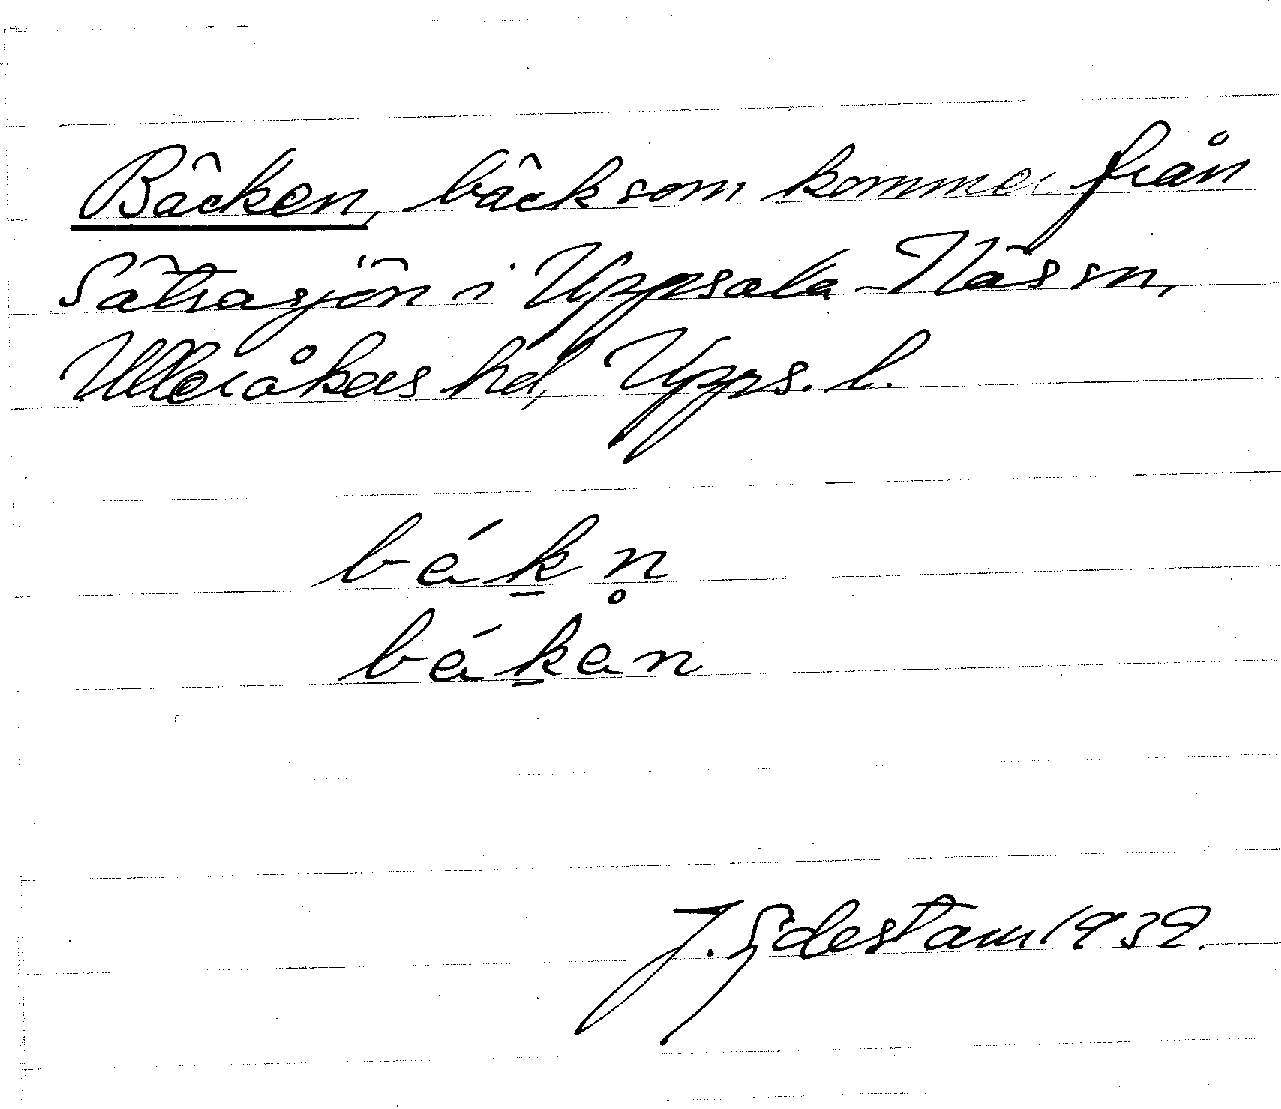 Bäcken, bäck som kommer från
Sätrasjön i Uppsala-Näs sn,
Ulleråkers hd, Upps. l.
bék̲n̥
bék̲en
J. 1932.